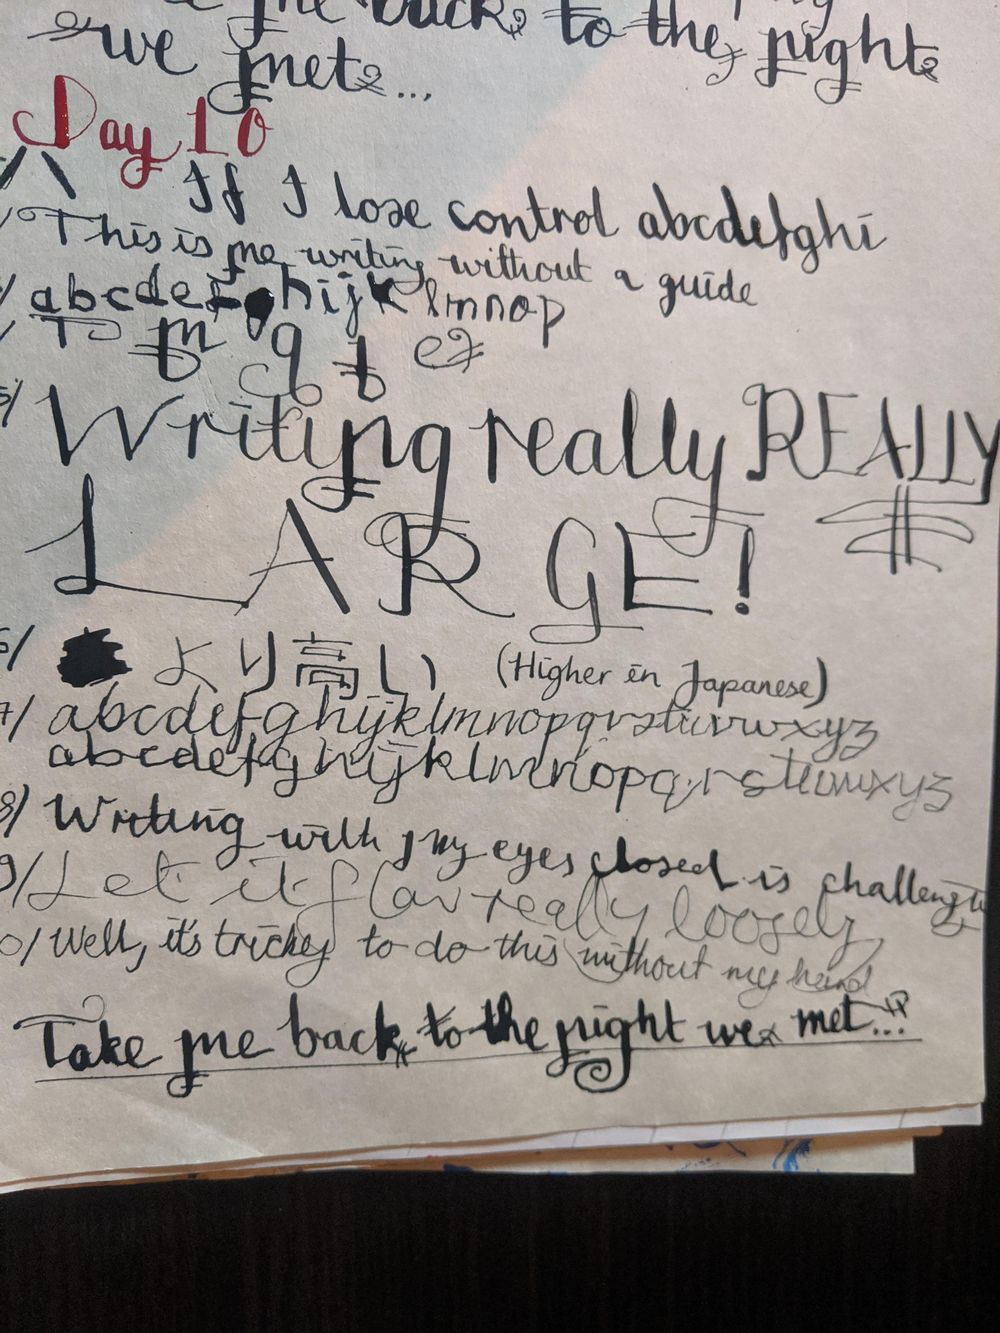 me back to the night
we met...
Day 10
1/ If I lose control abcdefghi
2/ This is me writing without a guide
3/ abcdefghijklmnop
4/ T m q t
5/ Writing really REALLY
LARGE!
6/ より高い (Higher in Japanese)
7/ abcdefghijklmnopqrstuvwxyz
abcdefghijklmnopqrstuvwxyz
8/ Writing with my eyes closed is
9/ Let it flow really loosely
0/ Well, it's trickey to do this without my hand
Take me back to the night we met...